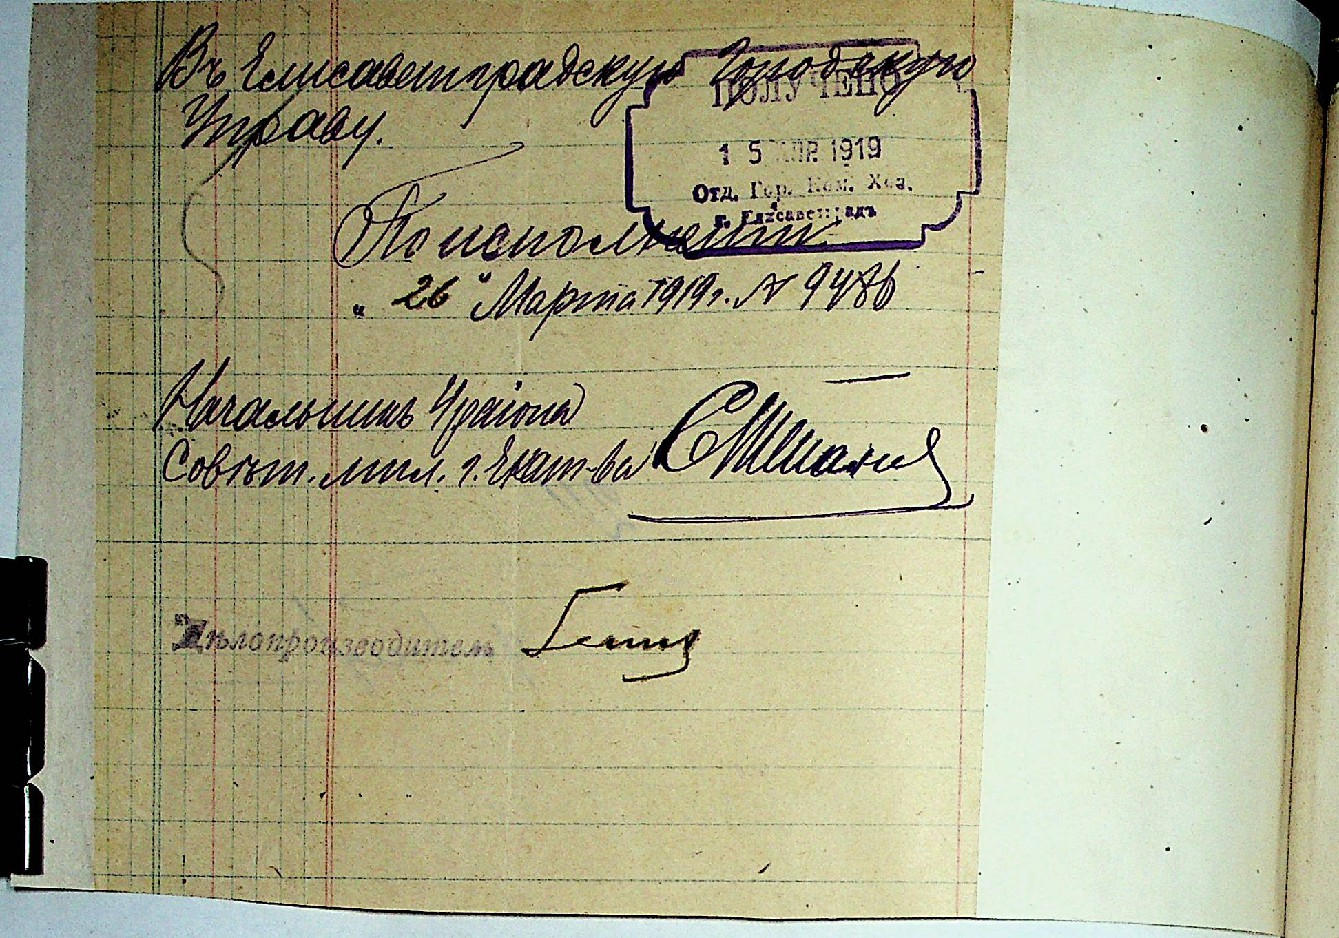 Въ Елисаветградскую Городскую
Управу.
ПОЛУЧЕНО
15 АПР 1919
Отд. Гор. Ком. Хоз.
г. Елисаветградъ
По исполнении
„26“ Марта 1919 г. № 9486
Начальникъ 4 района
Совѣт. мил. г. Екат-ва
Дѣлопроизводитель